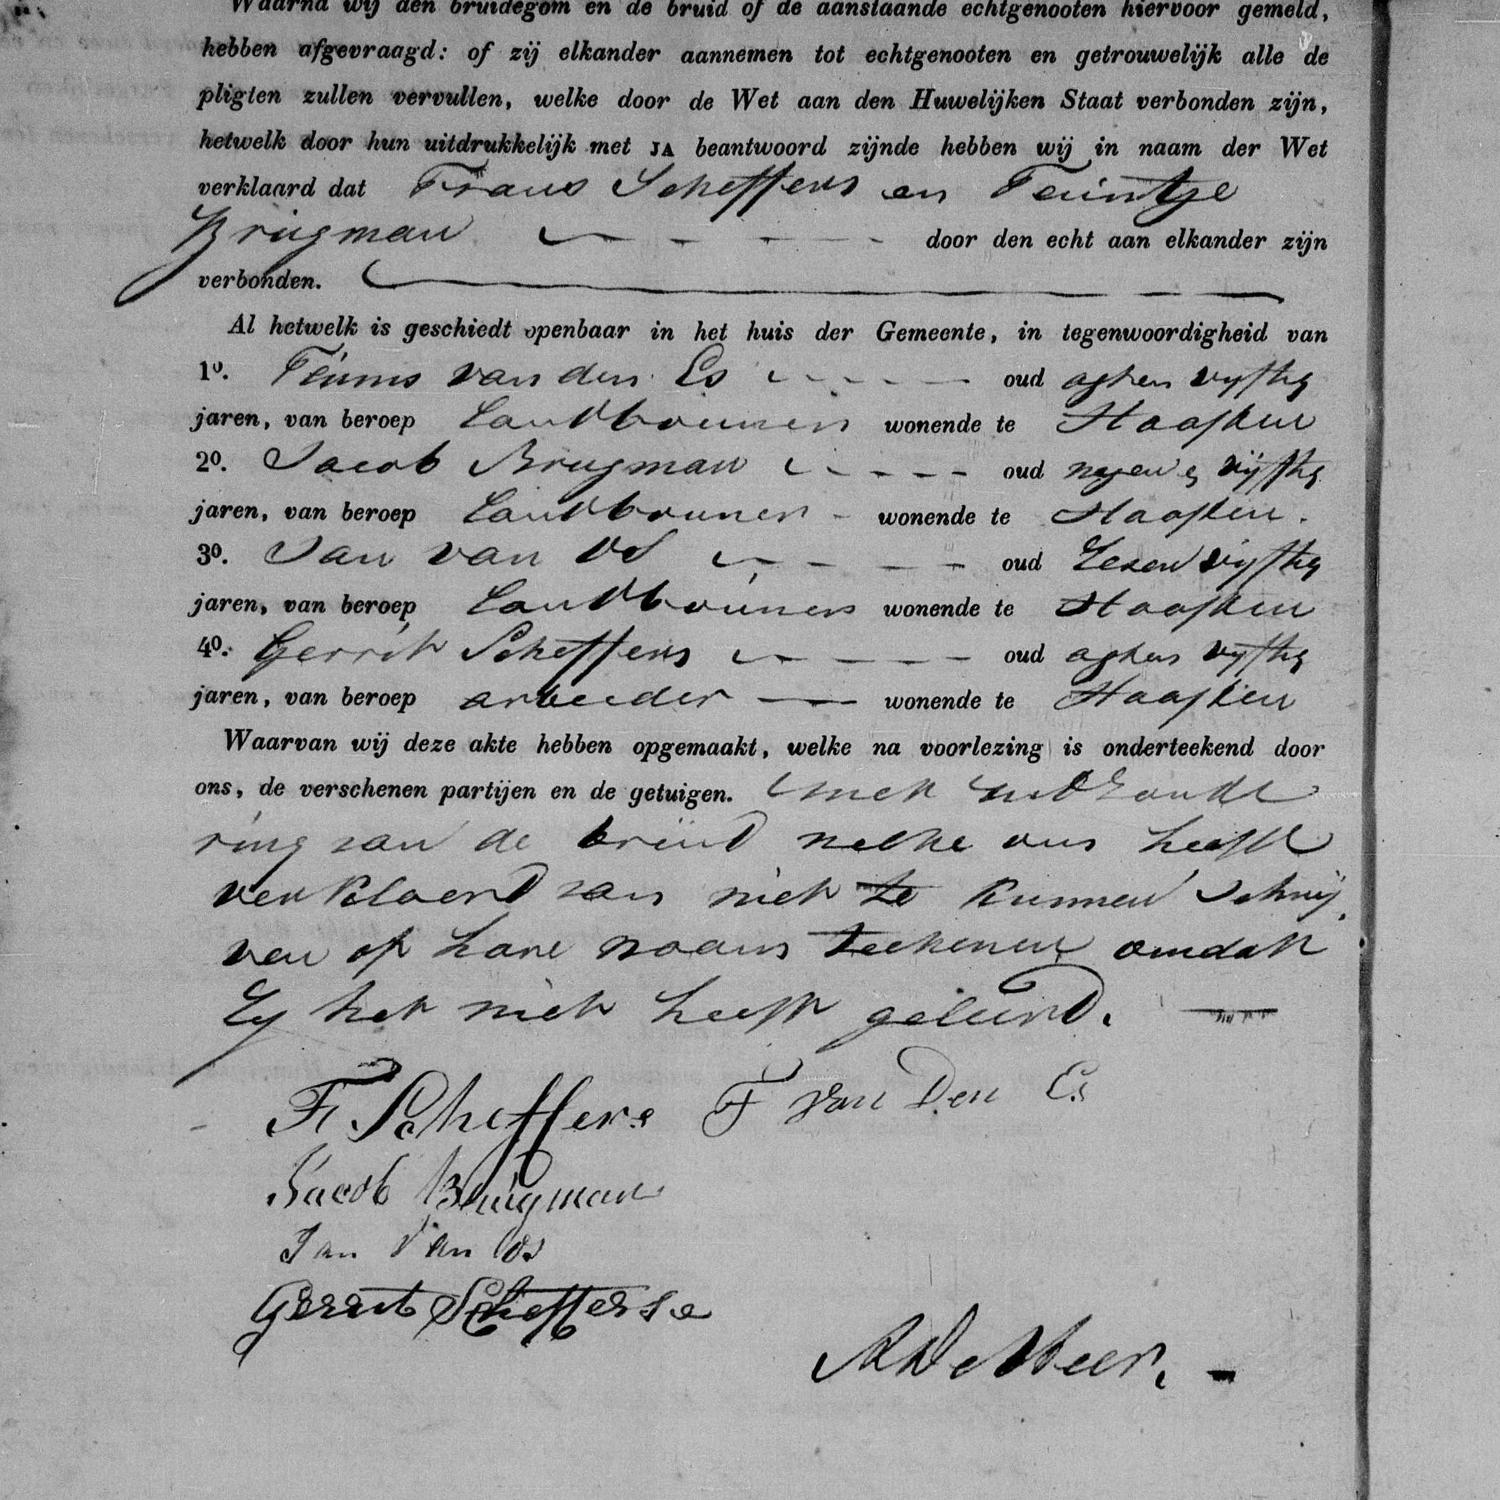 Waarna wij den bruidegom en de bruid of de aanstaande echtgenooten hiervoor gemeld,
hebben afgevraagd: of zij elkander aannemen tot echtgenooten en getrouwelijk alle de
pligten zullen vervullen, welke door de Wet aan den Huwelijken Staat verbonden zijn,
hetwelk door hun uitdrukkelijk met JA beantwoord zijnde hebben wij in naam der Wet
verklaard dat Frans Scheffers en Teuntje
Brugman door den echt aan elkander zijn
verbonden.
Al hetwelk is geschiedt openbaar in het huis der Gemeente, in tegenwoordigheid van
1o. Teunis van den Es oud agten vyftig
jaren, van beroep Landbouwer wonende te Haaften
2o. Jacob Brugman oud negen vijftig
jaren, van beroep Landbouwer wonende te Haaften.
3o. Jan van Os oud Zesen vijftig
jaren, van beroep Landbouwer wonende te Haaften
4o. Gerrit Scheffers oud agten vyftig
jaren, van beroep arbeider wonende te Haaften
Waarvan wij deze akte hebben opgemaakt, welke na voorlezing is onderteekend door
ons, de verschenen partijen en de getuigen. met uitzonde
ring van de bruid welke ons heeft
verklaard van niet te kunnen schrij
ven of hare naam teekenen omdat
Zy het niet heeft geleerd.
F Scheffers F van Den Es
Jacob Brugman
Jan Van Os
Gerrit Scheffers
de Meer.